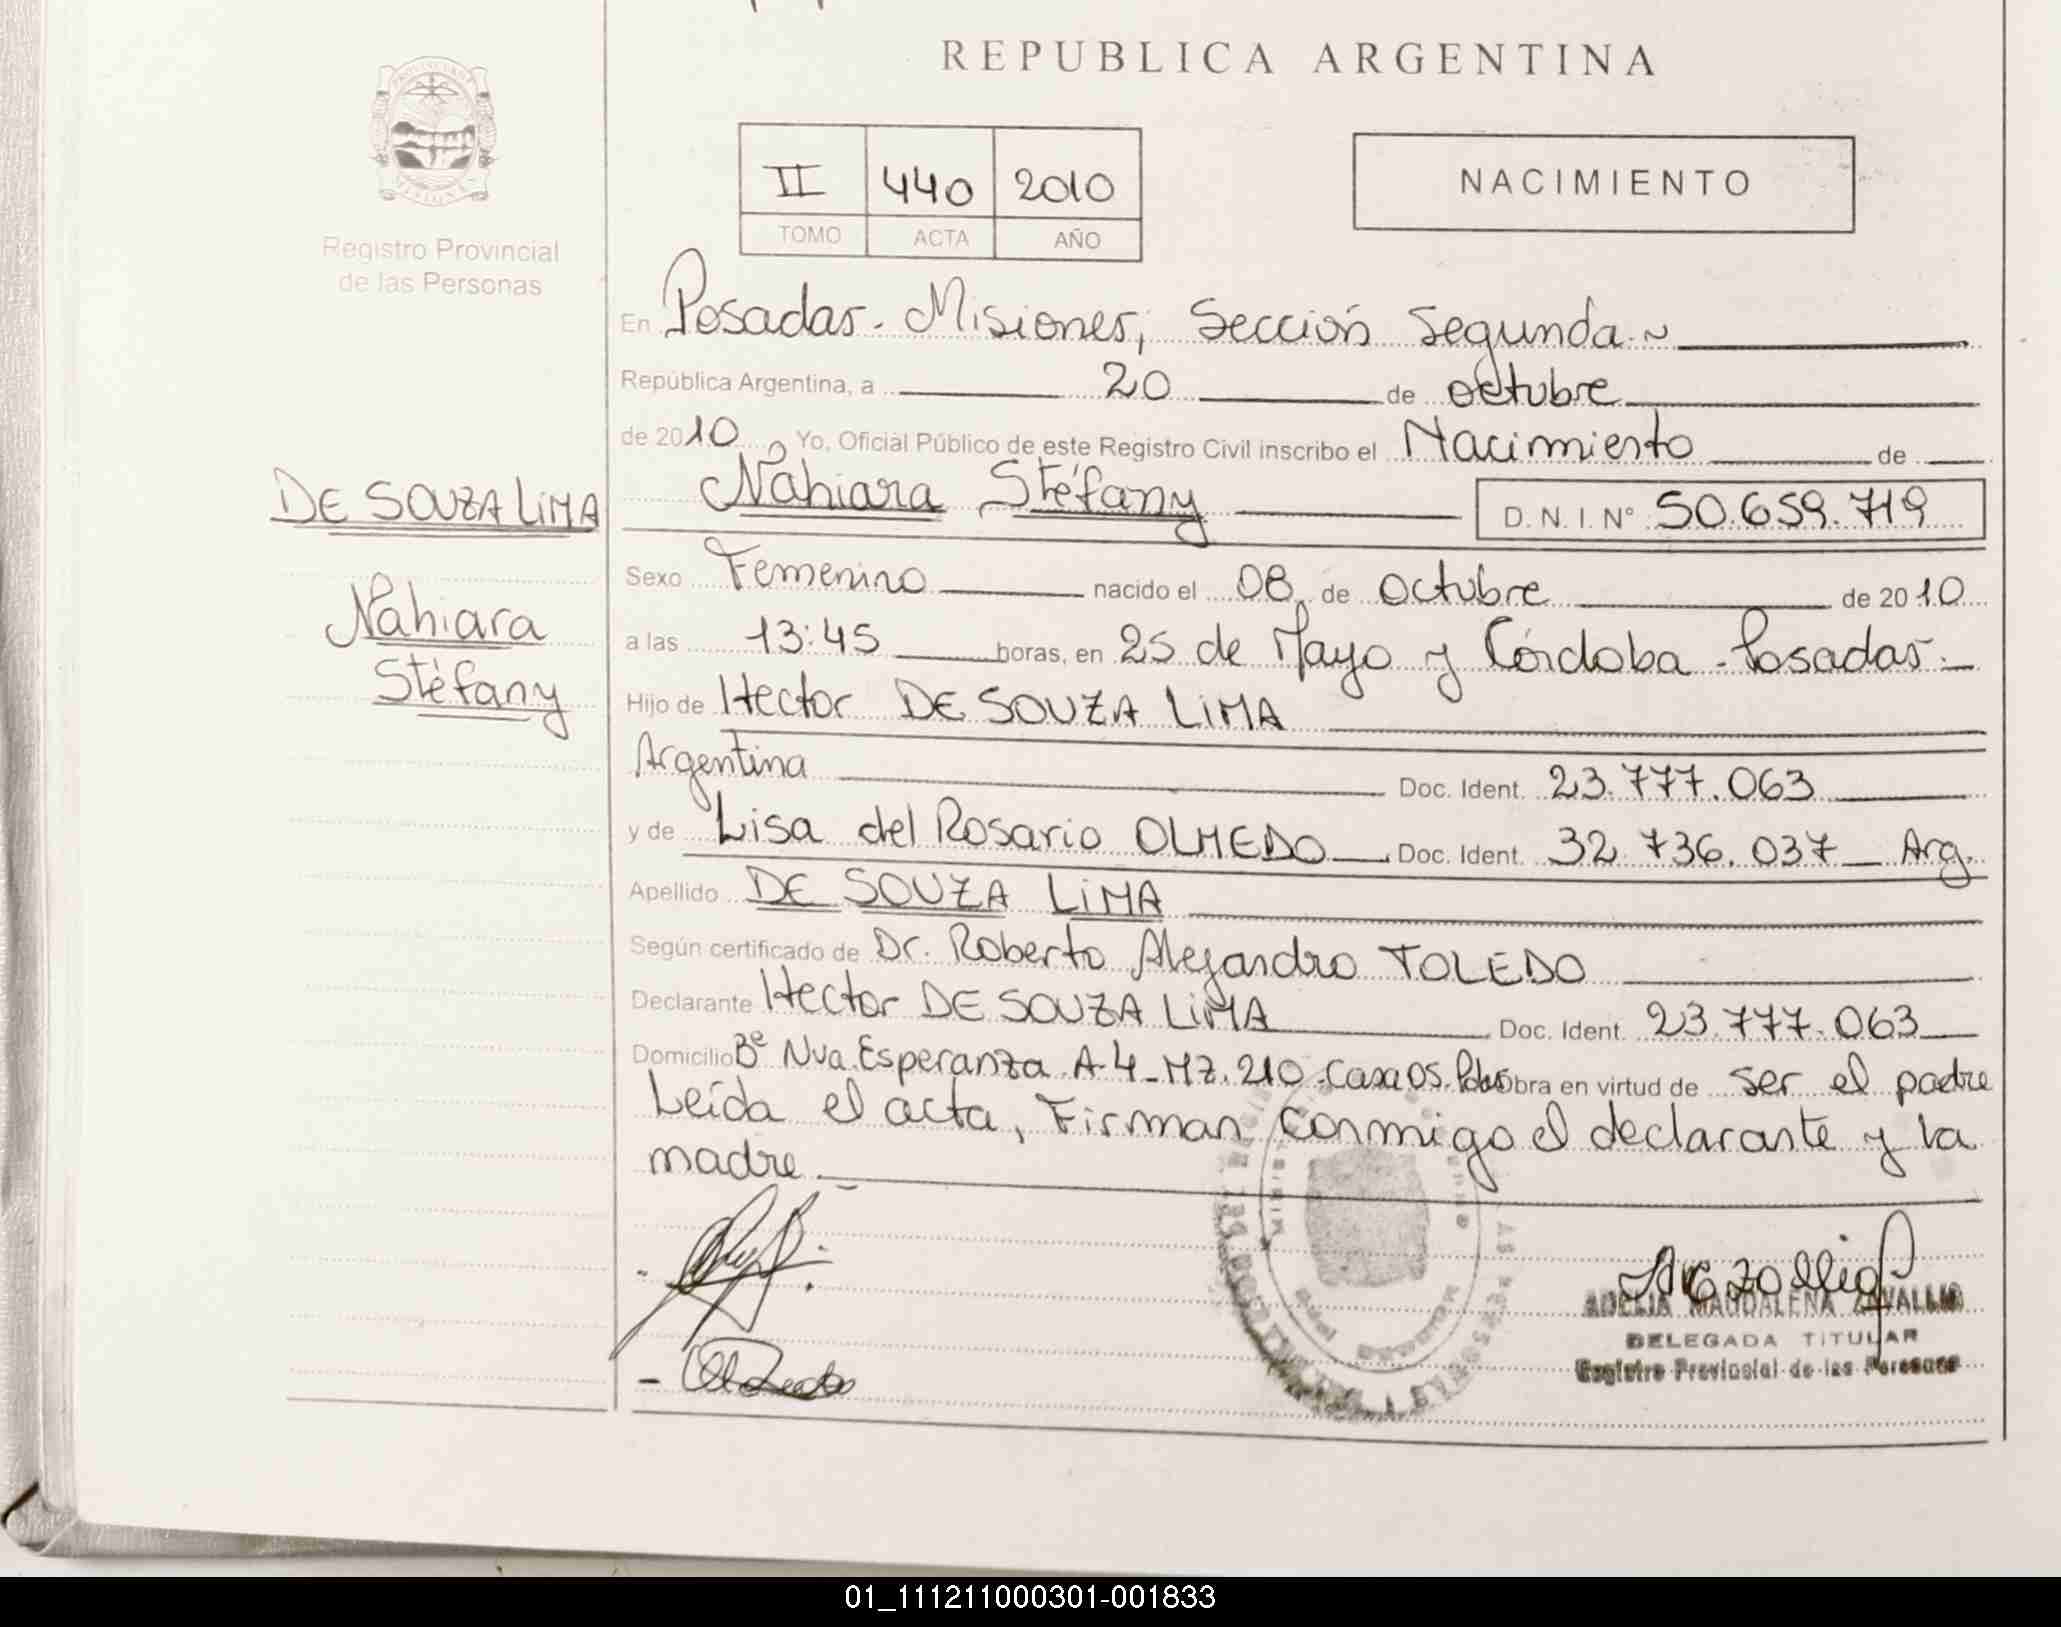 REPUBLICA ARGENTINA
II 440 2010
TOMO ACTA AÑO
NACIMIENTO
Registro Provincial
de las Personas
DE SOUZA LIMA
Nahiara
Stéfany
En Posadas - Misiones, Sección Segunda ~
República Argentina, a 20 de octubre
de 2010 Yo, Oficial Público de este Registro Civil inscribo el Nacimiento de
Nahiara Stéfany D.N.I. N° 50.659.719
Sexo Femenino nacido el 08 de octubre de 2010
a las 13:45 horas, en 25 de Mayo y Córdoba - Posadas -
Hijo de Hector DE SOUZA LIMA
Argentina Doc. Ident. 23.777.063
y de Lisa del Rosario OLMEDO Doc. Ident. 32.736.037 Arg.
Apellido DE SOUZA LIMA
Según certificado de Dr. Roberto Alejandro TOLEDO
Declarante Hector DE SOUZA LIMA Doc. Ident. 23.777.063
Domicilio B° Nva. Esperanza A-4 - MZ. 210 - Casa 05 - Pdas Obra en virtud de ser el padre
Leída el acta, Firman conmigo el declarante y la
madre
ADELIA MAGDALENA ZAVALLIA
DELEGADA TITULAR
Registro Provincial de las Personas
01_111211000301-001833